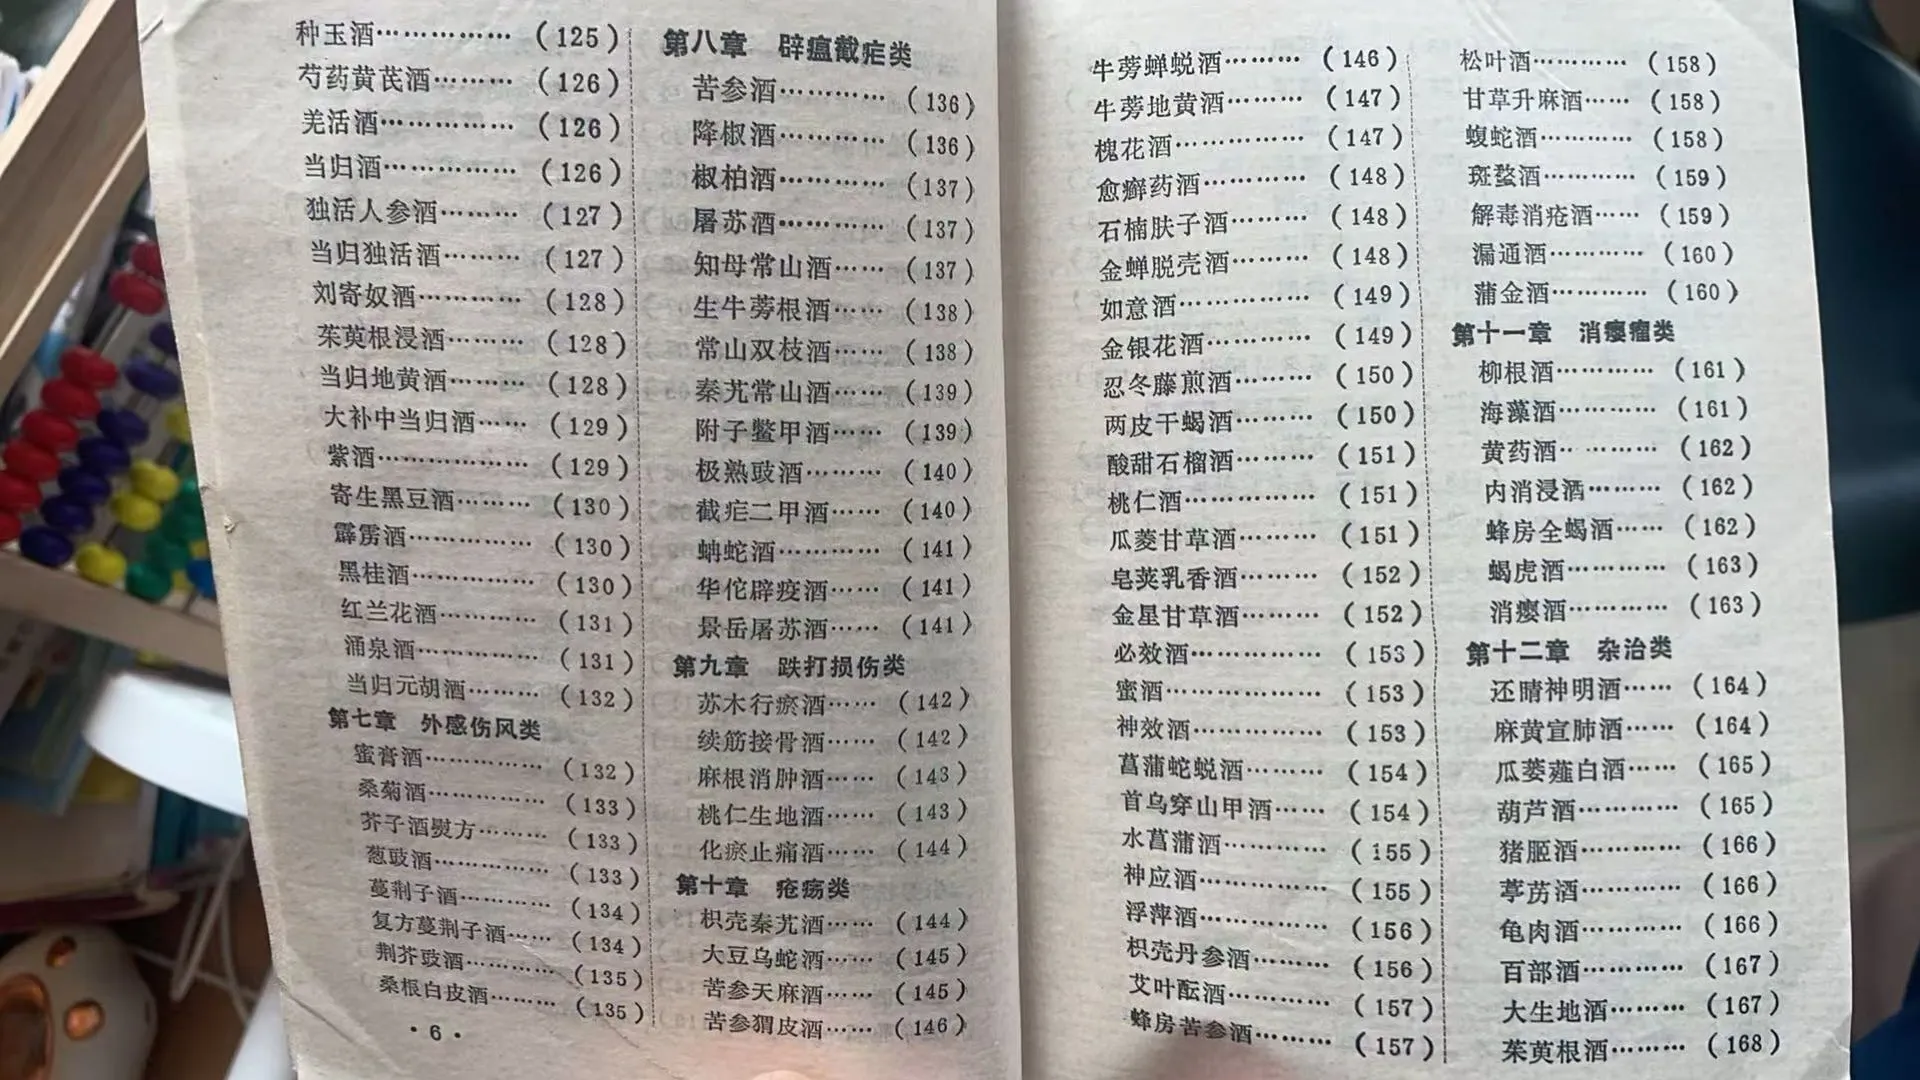 种玉酒……………(125)
芍药黄芪酒………(126)
羌活酒……………(126)
当归酒……………(126)
独活人参酒………(127)
当归独活酒………(127)
刘寄奴酒…………(128)
茱萸根浸酒………(128)
当归地黄酒………(128)
大补中当归酒……(129)
紫酒………………(129)
寄生黑豆酒………(130)
霹雳酒……………(130)
黑桂酒……………(130)
红兰花酒…………(131)
涌泉酒……………(131)
当归元胡酒………(132)
第七章 外感伤风类
蜜膏酒……………(132)
桑菊酒……………(133)
芥子酒熨方………(133)
葱豉酒……………(133)
蔓荆子酒…………(134)
复方蔓荆子酒……(134)
荆芥豉酒…………(135)
桑根白皮酒………(135)
·6·
第八章 辟瘟截疟类
苦参酒…………(136)
降椒酒…………(136)
椒柏酒…………(137)
屠苏酒…………(137)
知母常山酒……(137)
生牛蒡根酒……(138)
常山双枝酒……(138)
秦艽常山酒……(139)
附子鳖甲酒……(139)
极熟豉酒………(140)
截疟二甲酒……(140)
蚺蛇酒…………(141)
华佗辟疫酒……(141)
景岳屠苏酒……(141)
第九章 跌打损伤类
苏木行瘀酒……(142)
续筋接骨酒……(142)
麻根消肿酒……(143)
桃仁生地酒……(143)
化瘀止痛酒……(144)
第十章 疮疡类
枳壳秦艽酒……(144)
大豆乌蛇酒……(145)
苦参天麻酒……(145)
苦参猬皮酒……(146)
牛蒡蝉蜕酒………(146)
牛蒡地黄酒………(147)
槐花酒……………(147)
愈癣药酒…………(148)
石楠肤子酒………(148)
金蝉脱壳酒………(148)
如意酒……………(149)
金银花酒…………(149)
忍冬藤煎酒………(150)
两皮干蝎酒………(150)
酸甜石榴酒………(151)
桃仁酒……………(151)
瓜蒌甘草酒………(151)
皂荚乳香酒………(152)
金星甘草酒………(152)
必效酒……………(153)
蜜酒………………(153)
神效酒……………(153)
菖蒲蛇蜕酒………(154)
首乌穿山甲酒……(154)
水菖蒲酒…………(155)
神应酒……………(155)
浮萍酒……………(156)
枳壳丹参酒………(156)
艾叶酝酒…………(157)
蜂房苦参酒………(157)
松叶酒…………(158)
甘草升麻酒……(158)
蝮蛇酒…………(158)
斑蝥酒…………(159)
解毒消疮酒……(159)
漏通酒…………(160)
蒲金酒…………(160)
第十一章 消瘿瘤类
柳根酒…………(161)
海藻酒…………(161)
黄药酒…………(162)
内消浸酒………(162)
蜂房全蝎酒……(162)
蝎虎酒…………(163)
消瘿酒…………(163)
第十二章 杂治类
还睛神明酒……(164)
麻黄宣肺酒……(164)
瓜蒌薤白酒……(165)
葫芦酒…………(165)
猪脏酒…………(166)
葶苈酒…………(166)
龟肉酒…………(166)
百部酒…………(167)
大生地酒………(167)
茱萸根酒………(168)